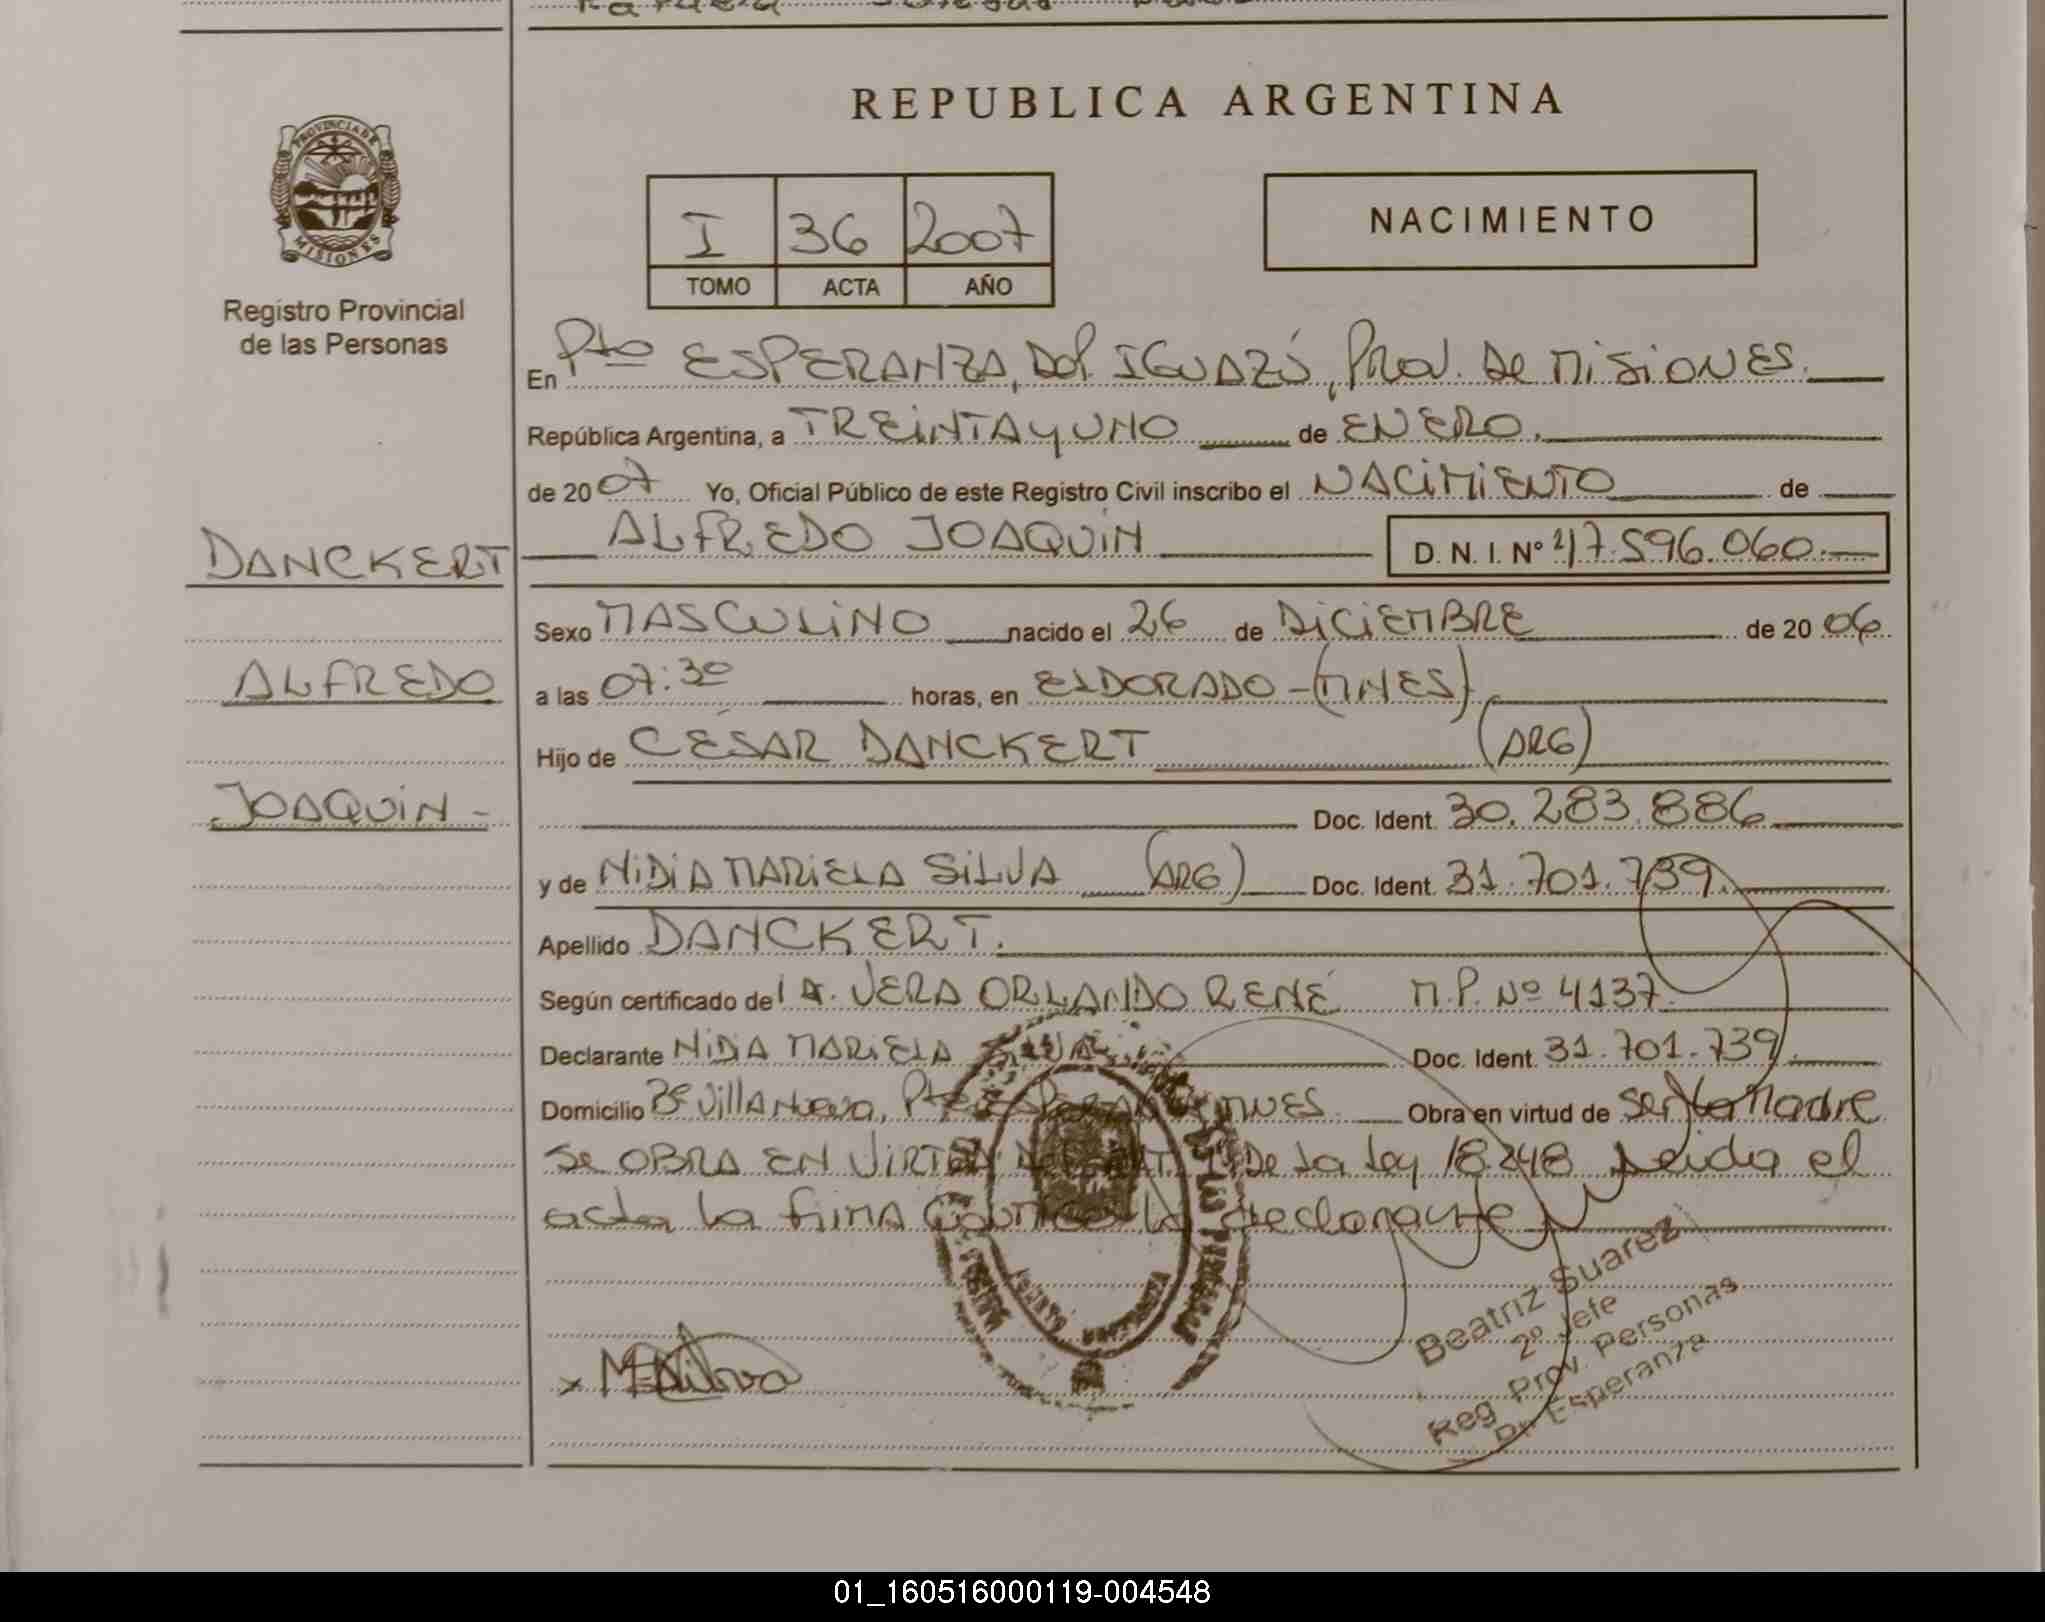 REPUBLICA ARGENTINA
PROVINCIA DE MISIONES
Registro Provincial
de las Personas
I 36 2007
TOMO ACTA AÑO
NACIMIENTO
En Pto ESPERANZA, Dep. IGUAZÚ, Prov. De MISIONES.
República Argentina, a TREINTA y UNO de ENERO.
de 2007 Yo, Oficial Público de este Registro Civil inscribo el NACIMIENTO de
DANCKERT ALFREDO JOAQUIN D. N. I. Nº 47.596.060.
Sexo MASCULINO nacido el 26 de DICIEMBRE de 2006
ALFREDO a las 07:30 horas, en ELDORADO - (MNES)
Hijo de CÉSAR DANCKERT (ARG)
JOAQUIN - Doc. Ident. 30.283.886
y de NIDIA MARIELA SILVA (ARG) Doc. Ident. 31.701.739.
Apellido DANCKERT.
Según certificado de VERA ORLANDO RENÉ M.P. Nº 4137.
Declarante NIDIA MARIELA SILVA Doc. Ident. 31.701.739.
Domicilio Bº Villa Nueva, Pto ESPERANZA MNES. Obra en virtud de ser la Madre
Se OBRA EN VIRTUD De La Ley 18.248 Leida el
acta la firma la declarante
Beatriz Suarez
2º Jefe
Reg. Prov. Personas
Pto Esperanza
x M Silva
01_160516000119-004548